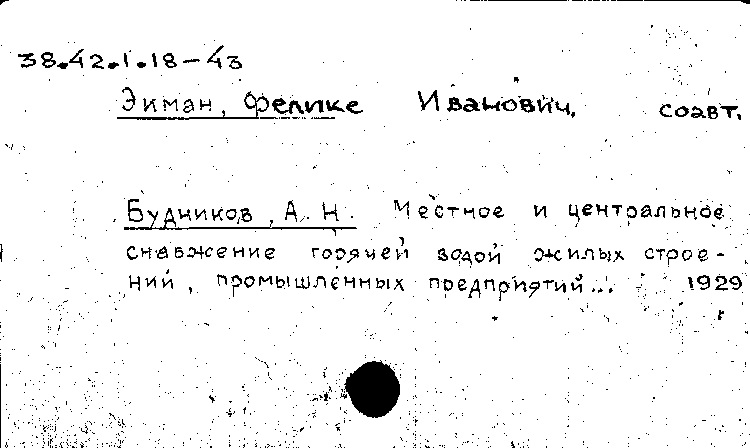 38.42.1.18-43
Экман, Феликс Иванович, соавт.
Будников, А. Н. Местное и центральное
снабжение горячей водой жилых строе-
ний, промышленных предприятий... 1929